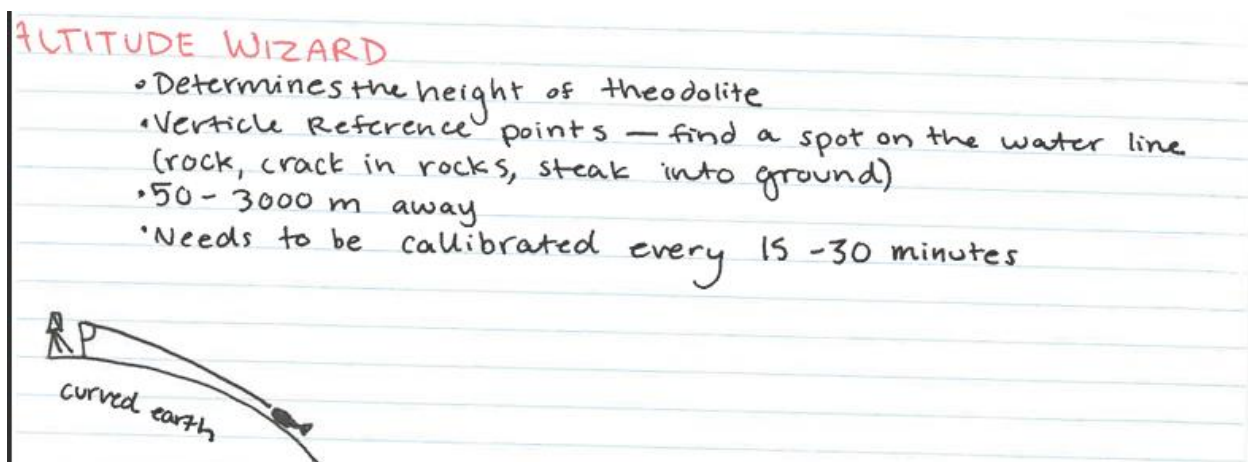 ALTITUDE WIZARD
• Determines the height of theodolite
• Verticle Reference points – find a spot on the water line
(rock, crack in rocks, steak into ground)
• 50 - 3000 m away
• Needs to be callibrated every 15 - 30 minutes
P
curved earth